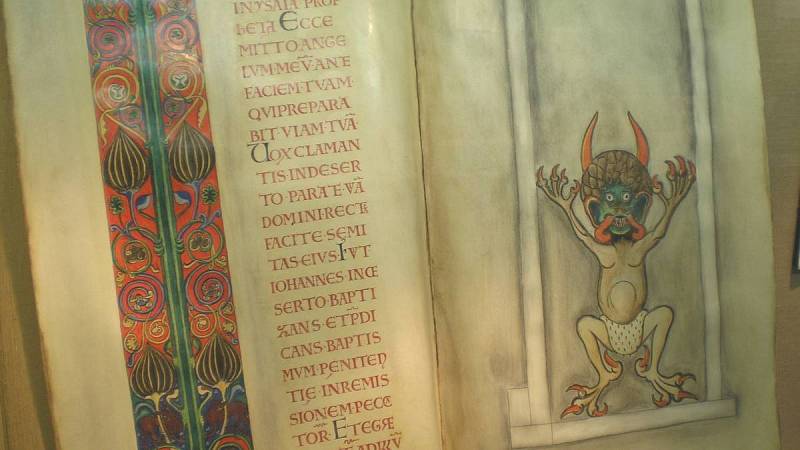 INYSAIA PROP
hETA ECCE
MITTO ANGE
LVM·MEV̄·ANTE
FACIEM·TVAM·
QVI PREPARA
BIT VIAM·TVĀ·
UOX CLAMAN
TIS·IN DESER
TO·PARATE·VĪĀ
DOMINI·RECT
FACITE SEMI
TAS·EIVS·FVIT
IOHANNES·IN
SERTO·BAPTI
ZANS·ET P̄DI
CANS·BAPTIS
MVM·PENITEN
TIE·IN REMIS
SIONEM·PECC
TOR·ETEGR